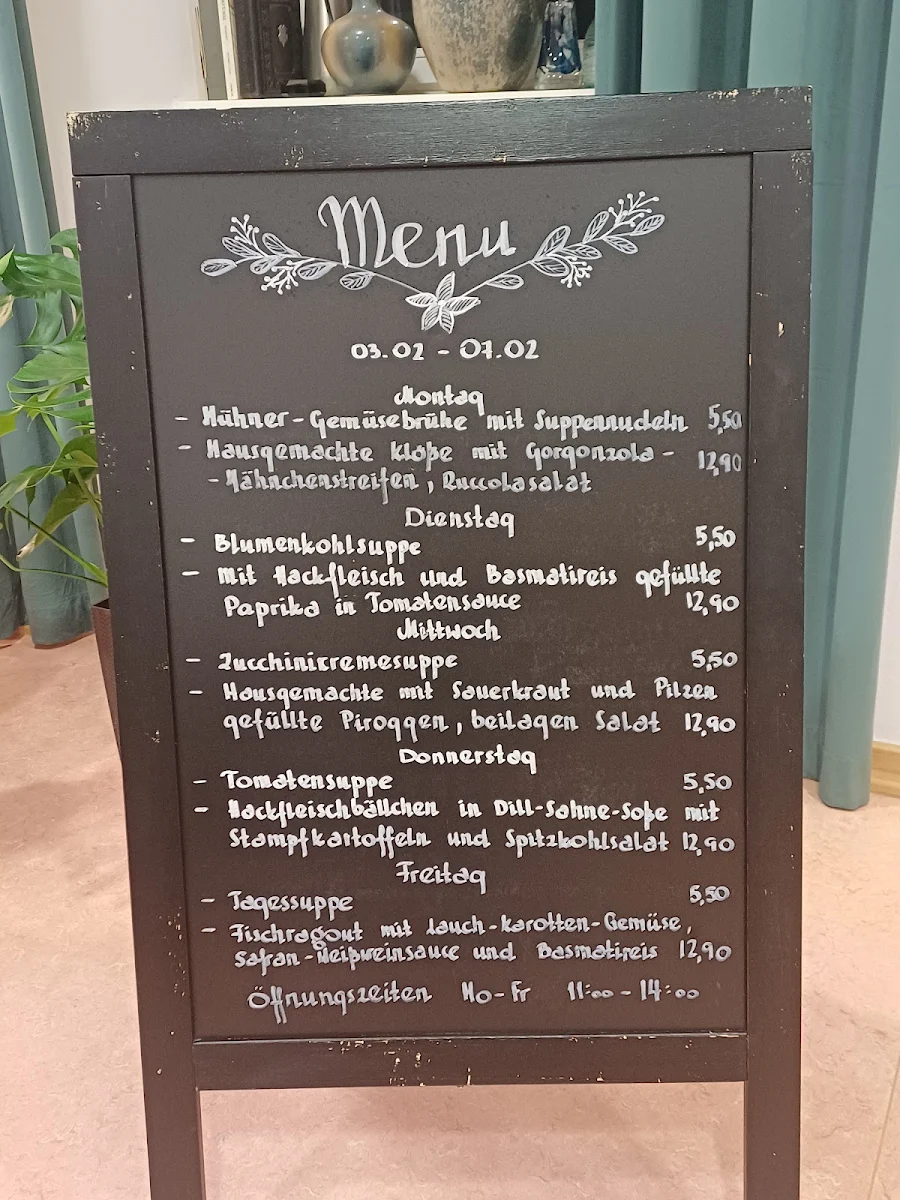 Menu
03.02 - 07.02
Montag
- Hühner-Gemüsebrühe mit Suppennudeln 5,50
- Hausgemachte Klöße mit Gorgonzola - 12,90
- Hähnchenstreifen, Ruccolasalat
Dienstag
- Blumenkohlsuppe 5,50
- mit Hackfleisch und Basmatireis gefüllte
Paprika in Tomatensauce 12,90
Mittwoch
- Zucchinicremesuppe 5,50
- Hausgemachte mit Sauerkraut und Pilzen
gefüllte Piroggen, beilagen Salat 12,90
Donnerstag
- Tomatensuppe 5,50
- Hackfleischbällchen in Dill-Sahne-Soße mit
Stampfkartoffeln und Spitzkohlsalat 12,90
Freitag
- Tagessuppe 5,50
- Fischragout mit Lauch-Karotten-Gemüse,
Safran-Weißweinsauce und Basmatireis 12,90
Öffnungszeiten Mo-Fr 11:00 - 14:00